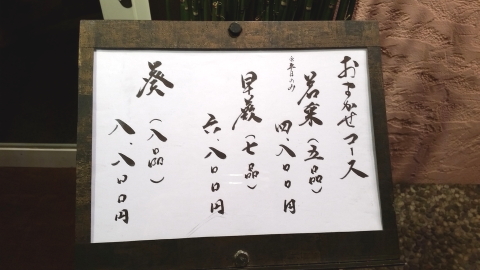 おまかせコース
※平日のみ
若菜（五品）
四、八〇〇円
早蕨（七品）
六、八〇〇円
葵（八品）
八、八〇〇円